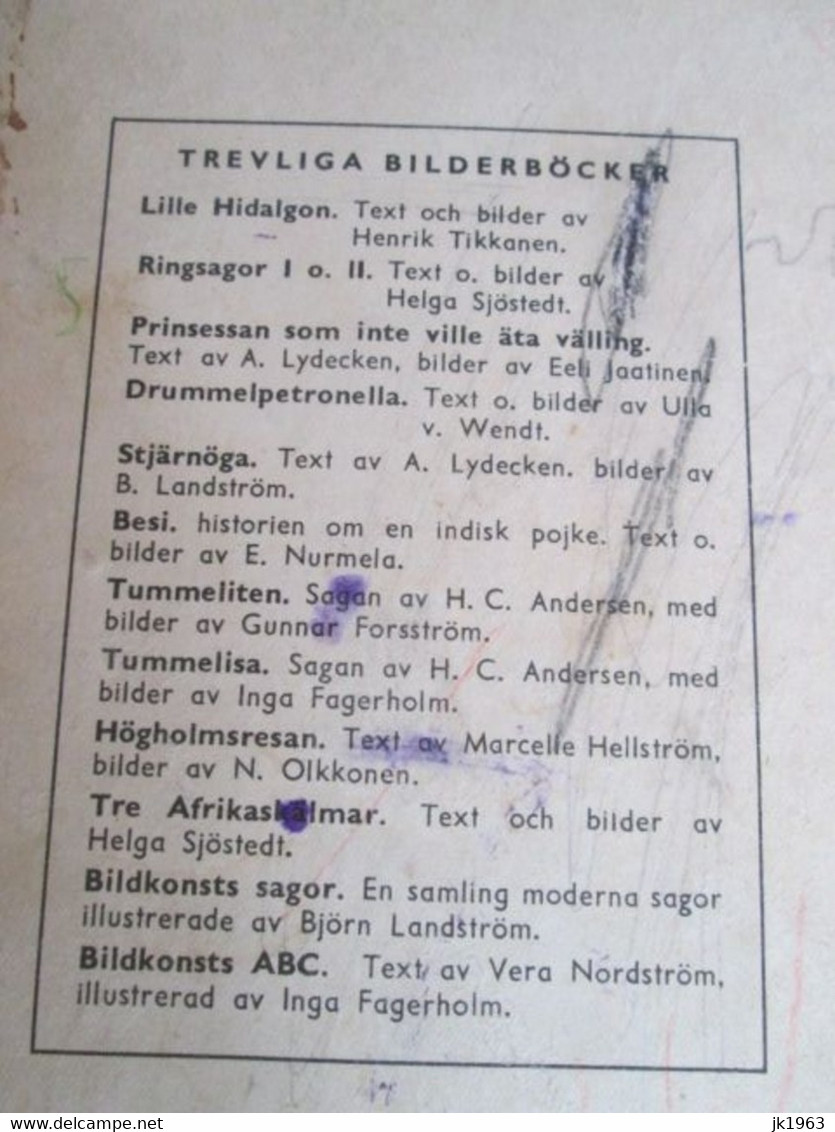 TREVLIGA BILDERBÖCKER
Lille Hidalgon. Text och bilder av
Henrik Tikkanen.
Ringsagor I o. II. Text o. bilder av
Helga Sjöstedt.
Prinsessan som inte ville äta välling.
Text av A. Lydecken, bilder av Eeli Jaatinen.
Drummelpetronella. Text o. bilder av Ulla
v. Wendt.
Stjärnöga. Text av A. Lydecken. bilder av
B. Landström.
Besi. historien om en indisk pojke. Text o.
bilder av E. Nurmela.
Tummeliten. Sagan av H. C. Andersen, med
bilder av Gunnar Forsström.
Tummelisa. Sagan av H. C. Andersen, med
bilder av Inga Fagerholm.
Högholmsresan. Text av Marcelle Hellström,
bilder av N. Olkkonen.
Tre Afrikaskälmar. Text och bilder av
Helga Sjöstedt.
Bildkonsts sagor. En samling moderna sagor
illustrerade av Björn Landström.
Bildkonsts ABC. Text av Vera Nordström,
illustrerad av Inga Fagerholm.
delcampe.net
jk1963